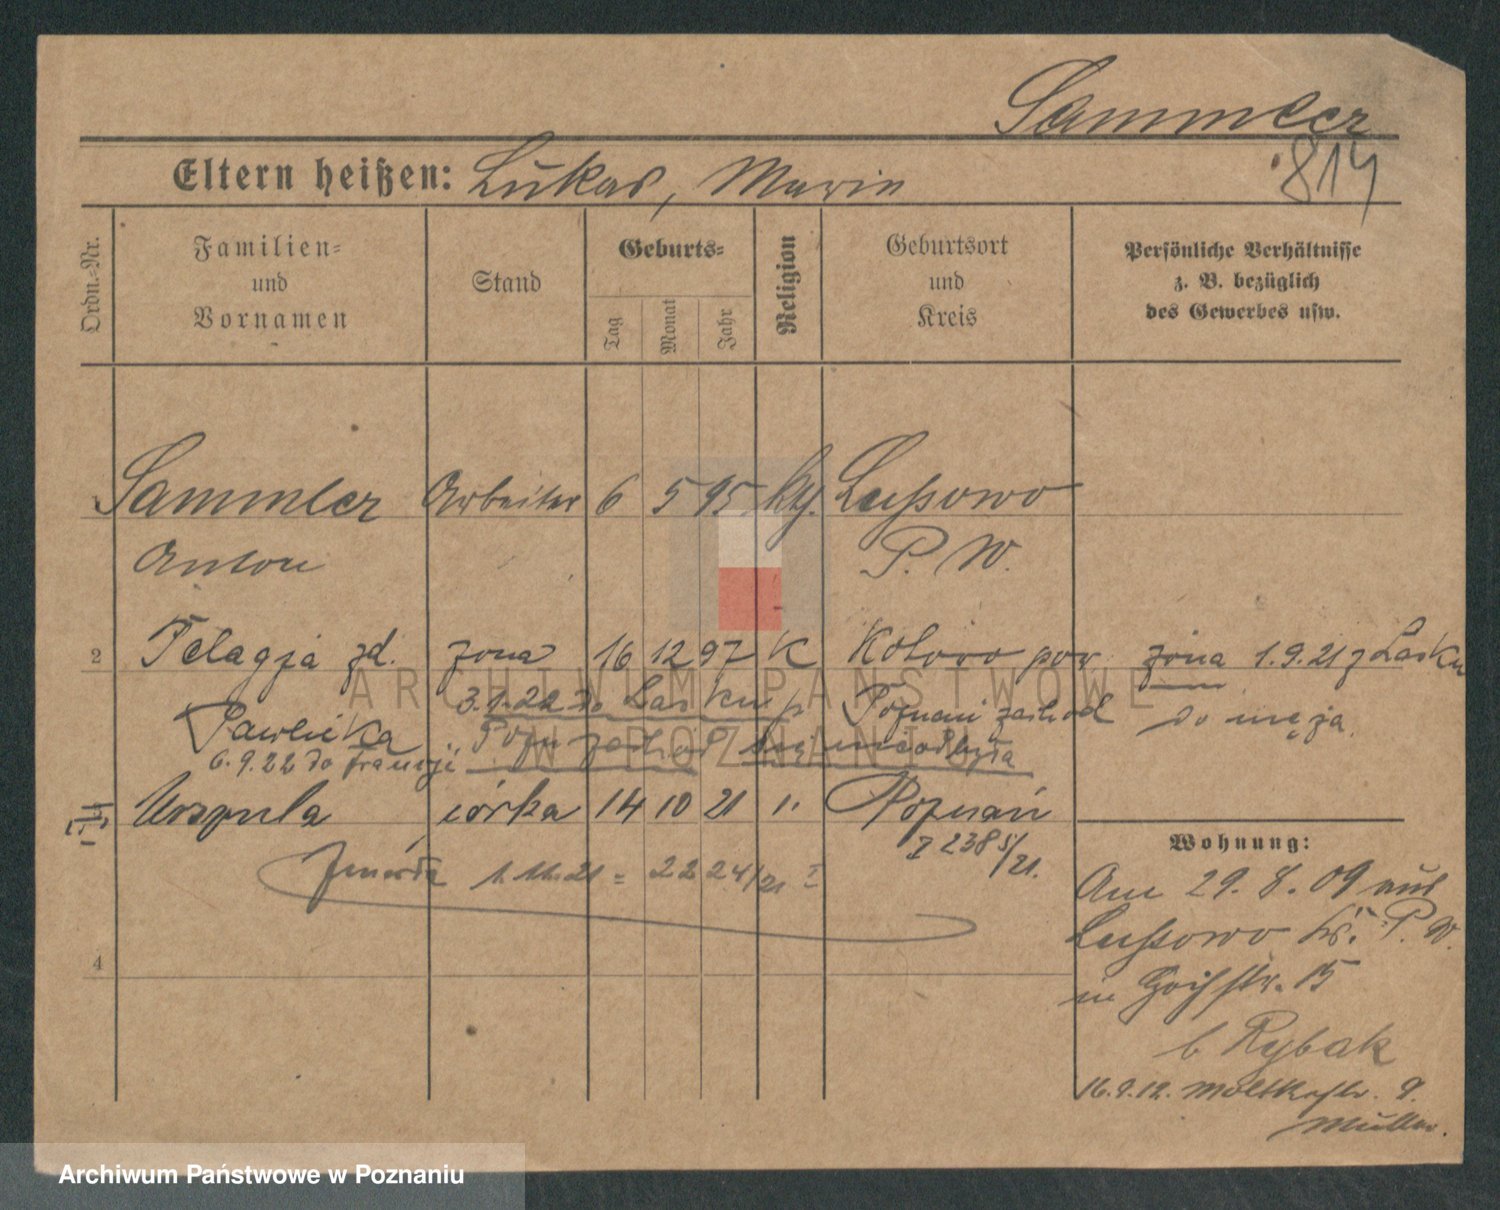 Sammler
814
Eltern heißen: Lukas, Marie
Ordn.-Nr.
Familien-
und
Vornamen
Stand
Geburts-
Tag
Monat
Jahr
Religion
Geburtsort
und
Kreis
Persönliche Verhältnisse
z. B. bezüglich
des Gewerbes usw.
1 Sammler Arbeiter 6 5 95 Lussowo
Anton P. W.
2 Pelagja zd. żona 16 12 97 K Kotowo pow żona 1.9.21 z Lasku
3.1.22 do Lasku p
Pawlicka Poznań zachod do męża.
Pozn zachod się nie odbyła
6.9.22 do Francji
Urszula córka 14 10 21 Poznań
I 2385/21.
Zmarła 1.11.21 = 2224/21 I
4
Wohnung:
Am 29.8.09 aus
Lussowo Kr. P. W.
in 15
b Rybak
16.9.12. Moltkestr. 9.
Müller.
ARCHIWUM PAŃSTWOWE
W POZNANIU
Archiwum Państwowe w Poznaniu